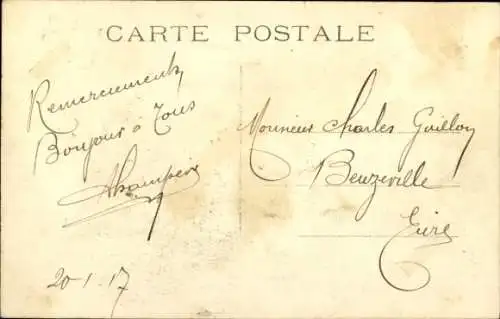 CARTE POSTALE
Remerciements
Bonjour à Tous
20-1-17
Monsieur Charles Guillon
Beuzeville
Eure